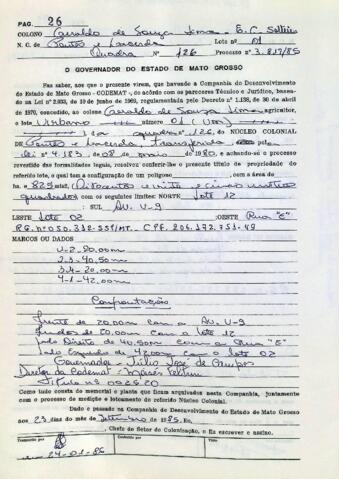 PAG. 26
COLONO Geraldo de Souza Lima - E.C. Solteiro
N. C. de Pontes e Lacerda Lote nº 01
Quadra Nº 126 Processo nº 3.817/85
O GOVERNADOR DO ESTADO DE MATO GROSSO
Faz saber, aos que o presente virem, que havendo a Companhia de Desenvolvimento
do Estado de Mato Grosso - CODEMAT -, de acordo com os pareceres Técnico e Jurídico, baseados
na Lei nº 2.933, de 10 de junho de 1969, regulamentada pelo Decreto nº 1.138, de 30 de abril
de 1970, concedido, ao colono Geraldo de Souza Lima agricultor,
o lote Urbano número 01 (Um)
da quadra nº 126, do NÚCLEO COLONIAL
de Pontes e Lacerda, Transferida pela
lei nº 4.183 de 08 de maio de 1980, e achando-se o processo
revestido das formalidades legais, resolveu conferir-lhe o presente título de propriedade do
referido lote, o qual tem a configuração de um polígono com a área de
ha e 825 mts2, (Oitocentos e vinte e cinco metros
quadrados) com os seguintes limites: NORTE Lote 12
: SUL AV. U-9
LESTE Lote 02 :OESTE Rua "E"
R.G. nº 050.332-SSP/MT. - CPF. 206.172.731-49
MARCOS OU DADOS
2-3 - 40,50m
3-4 - 20.00m
4-1 - 42.00m
Confrontação
frente de 20.00m com a AV. U-9
fundos de 20.00m com o lote 12
lado Direito de 40.50m com a Rua "E"
lado Esquerdo de 42.00m com o lote 02
Governador - Júlio José de Campos
Diretor da Codemat - Moisés Feltrin
Título nº 002520
Como tudo consta do memorial e planta que ficam arquivados nesta Companhia, juntamente
com o processo de medição e loteamento do referido Núcleo Colonial.
Dado e passado na Companhia de Desenvolvimento do Estado de Mato Grosso
aos 23 dias do mês de Setembro de 1985. Eu,
, Chefe do Setor de Colonização, o fiz escrever e assino.
em 24-01-86